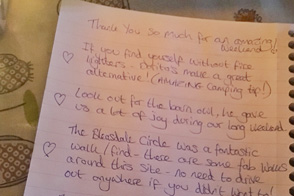 Thank you so much for an amazing
weekend
If you find yourself without fire
lighters - Doritos make a great
alternative! (AMAZING camping tip!)
Look out for the barn owl, he gave
us a lot of joy during our long weekend.
The Bleasdale Circle was a fantastic
walk/find - there are some fab walks
around this site - no need to drive
out anywhere if you didn't want to!